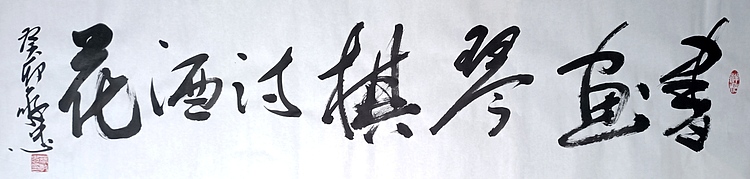 書画琴棋诗酒花
癸卯